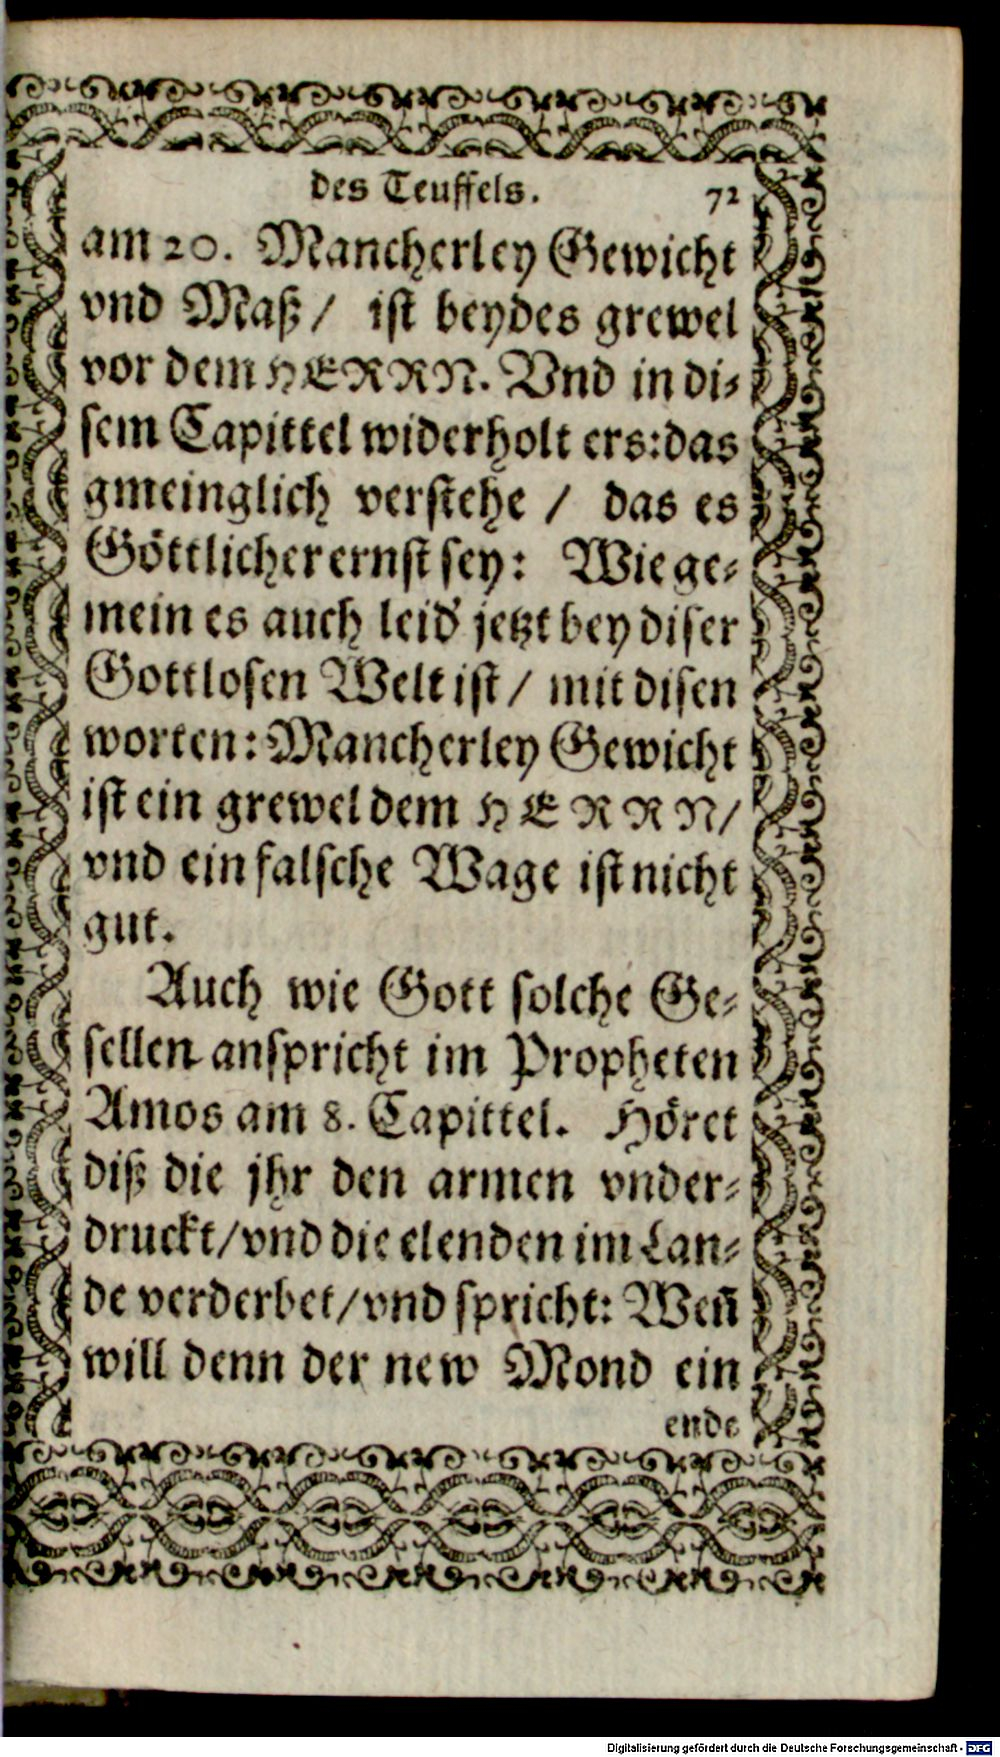 des Teuffels. 72
am 20. Mancherley Gewicht
vnd Maß / ist beydes grewel
vor dem HERRN. Vnd in di⸗
sem Capittel widerholt ers: das
gmeinglich verstehe / das es
Göttlicher ernst sey: Wie ge⸗
mein es auch leid' jetzt bey diser
Gottlosen Welt ist / mit disen
worten: Mancherley Gewicht
ist ein grewel dem HERRN/
vnd ein falsche Wage ist nicht
gut.
Auch wie Gott solche Ge⸗
sellen anspricht im Propheten
Amos am 8. Capittel. Höret
diß die jhr den armen vnder⸗
druckt/ vnd die elenden im Lan⸗
de verderbet/ vnd spricht: Weñ
will denn der new Mond ein
ende
Digitalisierung gefördert durch die Deutsche Forschungsgemeinschaft - DFG